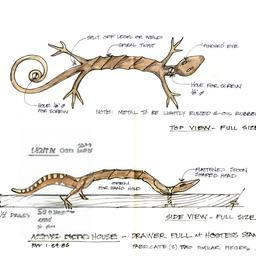 SPLIT OFF LEGS OR WELD
SPIRAL TWIST
PUNCHED EYE
HOLE FOR SCREW
HOLE
FOR SCREW
NOTE: METAL TO BE LIGHTLY RUSTED & OIL RUBBED
TOP VIEW - FULL SIZE
FLATTENED SPOON
SHAPED HAND
OPEN
FOR HAND HOLD
SIDE VIEW - FULL SIZE
HOUSE - DRAWER PULL AT HOSTESS STAN
FABRICATE (2) TWO SIMILAR PIECES